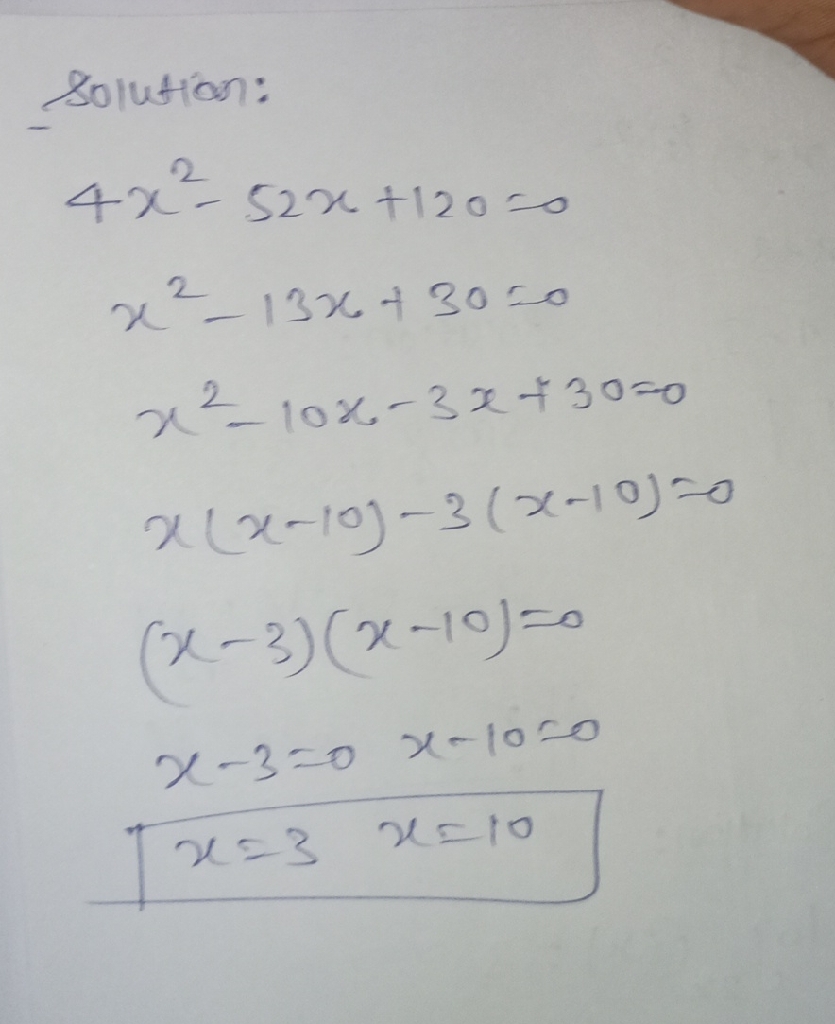 Solution:
4x² - 52x + 120 = 0
x² - 13x + 30 = 0
x² - 10x - 3x + 30 = 0
x(x-10) - 3(x-10) = 0
(x-3)(x-10) = 0
x-3=0 x-10=0
x=3 x=10